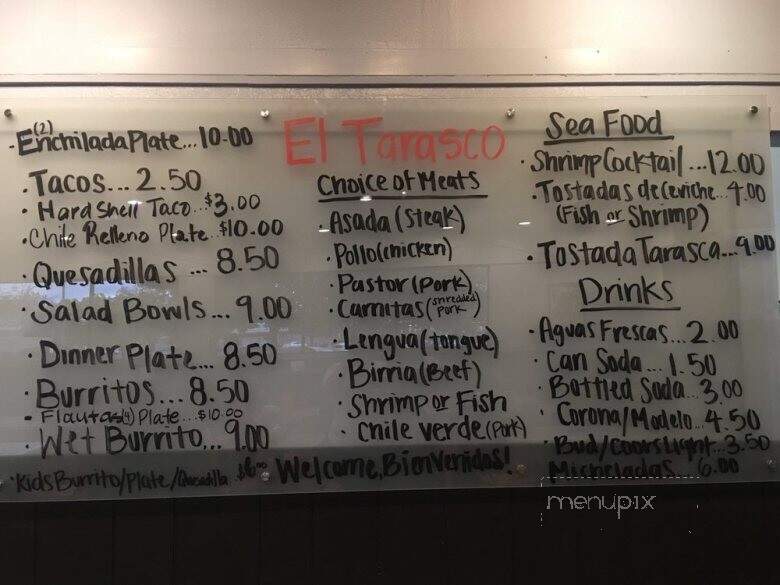 (2)
Enchilada Plate... 10.00
. Tacos... 2.50
• Hard Shell Taco..$3.00
. Chile Relleno Plate. $10.00
. Quesadillas ... 8.50
• Salad Bowls... 9.00
• Dinner Plate... 8.50
• Burritos... 8.50
- Flautas(4) Plate ...$10.00
• Wet Burrito... 9.00
• Kids Burrito/Plate/Quesadilla $6.00
El Tarasco
Choice of Meats
• Asada (steak)
• Pollo (chicken)
• Pastor (Pork)
• Carnitas (shredded pork)
• Lengua (tongue)
• Birria (Beef)
• Shrimp or Fish
• Chile verde (Pork)
Welcome, Bienvenidos!
Sea Food
• Shrimp Cocktail ... 12.00
• Tostadas de Ceviche... 4.00
(Fish or Shrimp)
• Tostada Tarasca... 9.00
Drinks
• Aguas Frescas... 2.00
• Can Soda... 1.50
• Bottled Soda... 3.00
• Corona/Modelo... 4.50
• Bud/Coors Light... 3.50
Micheladas... 6.00
menupix